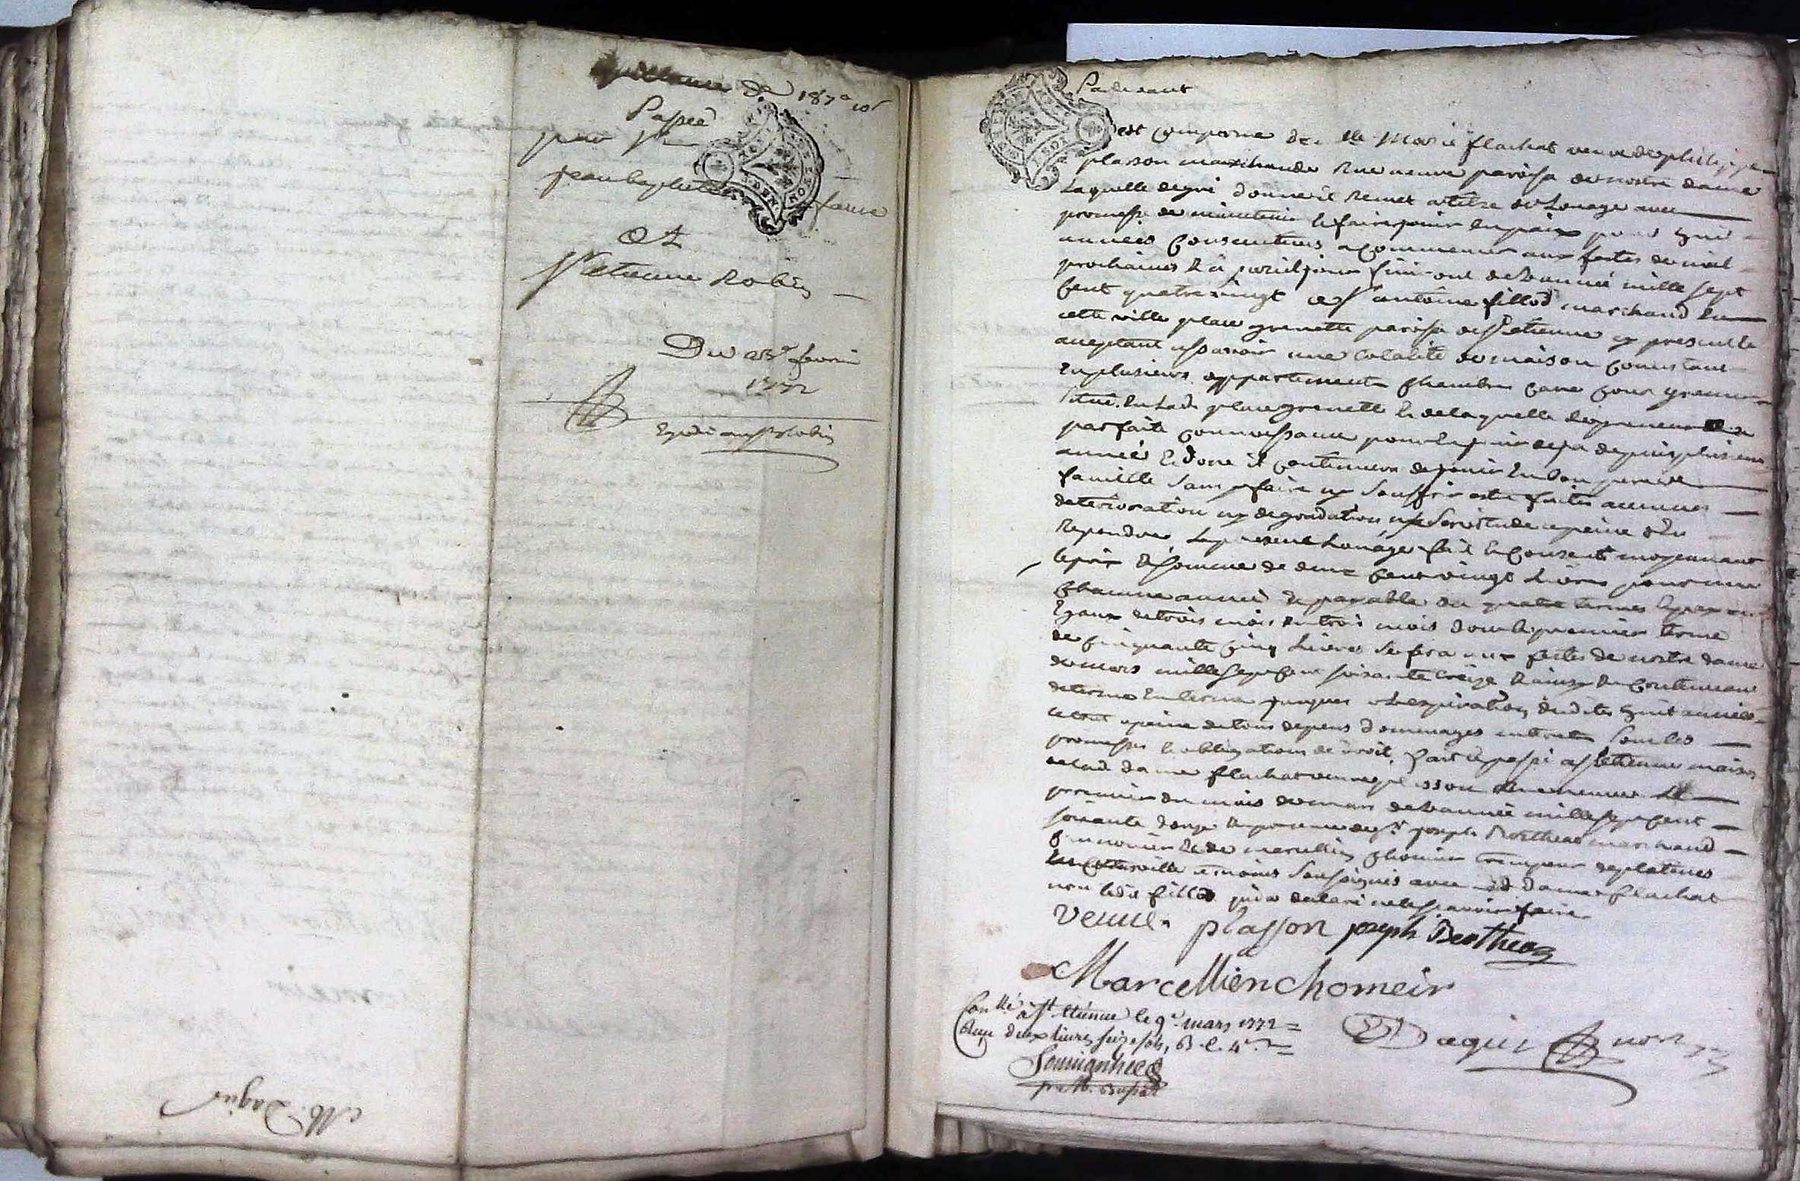 quittance de 187# 10s
Passée
par Sr
jean baptiste faure
A
Sr etienne Robin
Du 25e fevrier
1772
Expedié au sr Robin
Pardevant
est comparue dlle Marie flachat veuve de philippe
plasson marchande Rue neuve paroisse de nostre dame
Laquelle de gré donne et Remet a titre de Louage avec
promesse de maintenir et faire jouir en paix pour huit
années consecutives a commencer aux fêtes de noel
prochaines et a pareil jour finiront de L'année mille sept
cent quatre vingt a Sr antoine fillod marchand En
cette ville place grenette paroisse de St etienne cy present et
acceptant assavoir une totalité de maison consistant
En plusieurs appartements chambre cave cour grenier
situé En Lade place grenette et de laquelle le preneur a
parfaite connoissance pour En jouir deja depuis plusieurs
années Et dont il continuera de jouir En bon pere de
famille sans y faire ny souffrir estre faites aucunes
deterioration ny degradation ny servitude a peine d'En
Repondre Le present Louage fait et consenti moyennant
le prix et somme de deux cent vingt Livres pour une
chacune année et payable En quatre termes et payements
Egaux de trois mois En trois mois dont le premier terme
de cinquante cinq Livres se fera aux fêtes de nostre dame
de mars mille sept cent soixante treize Et ainsy En continuant
de terme En terme jusques a L'expiration desdites huit années
le tout a peine de tous depens dommages interets sous les
promesses et obligations de droit. fait et passé a St etienne maison
de Lad dame flachat veuve plasson Rue neuve Le
premier du mois de mars de L'année mille sept cent
soixante douze En presence de Sr joseph Bertheas marchand
et de marcellin chomier trempeur de platines
En cette ville temoins soussignés avec Lad dame flachat
non led Sr fillod qui a declaré ne le scavoir faire
veuve plasson joseph Bertheas
Marcellien chomeir
Conllé a St Etienne le 9e mars 1772
Reçu deux livres seize sols
Dagier nore
M. Dagier